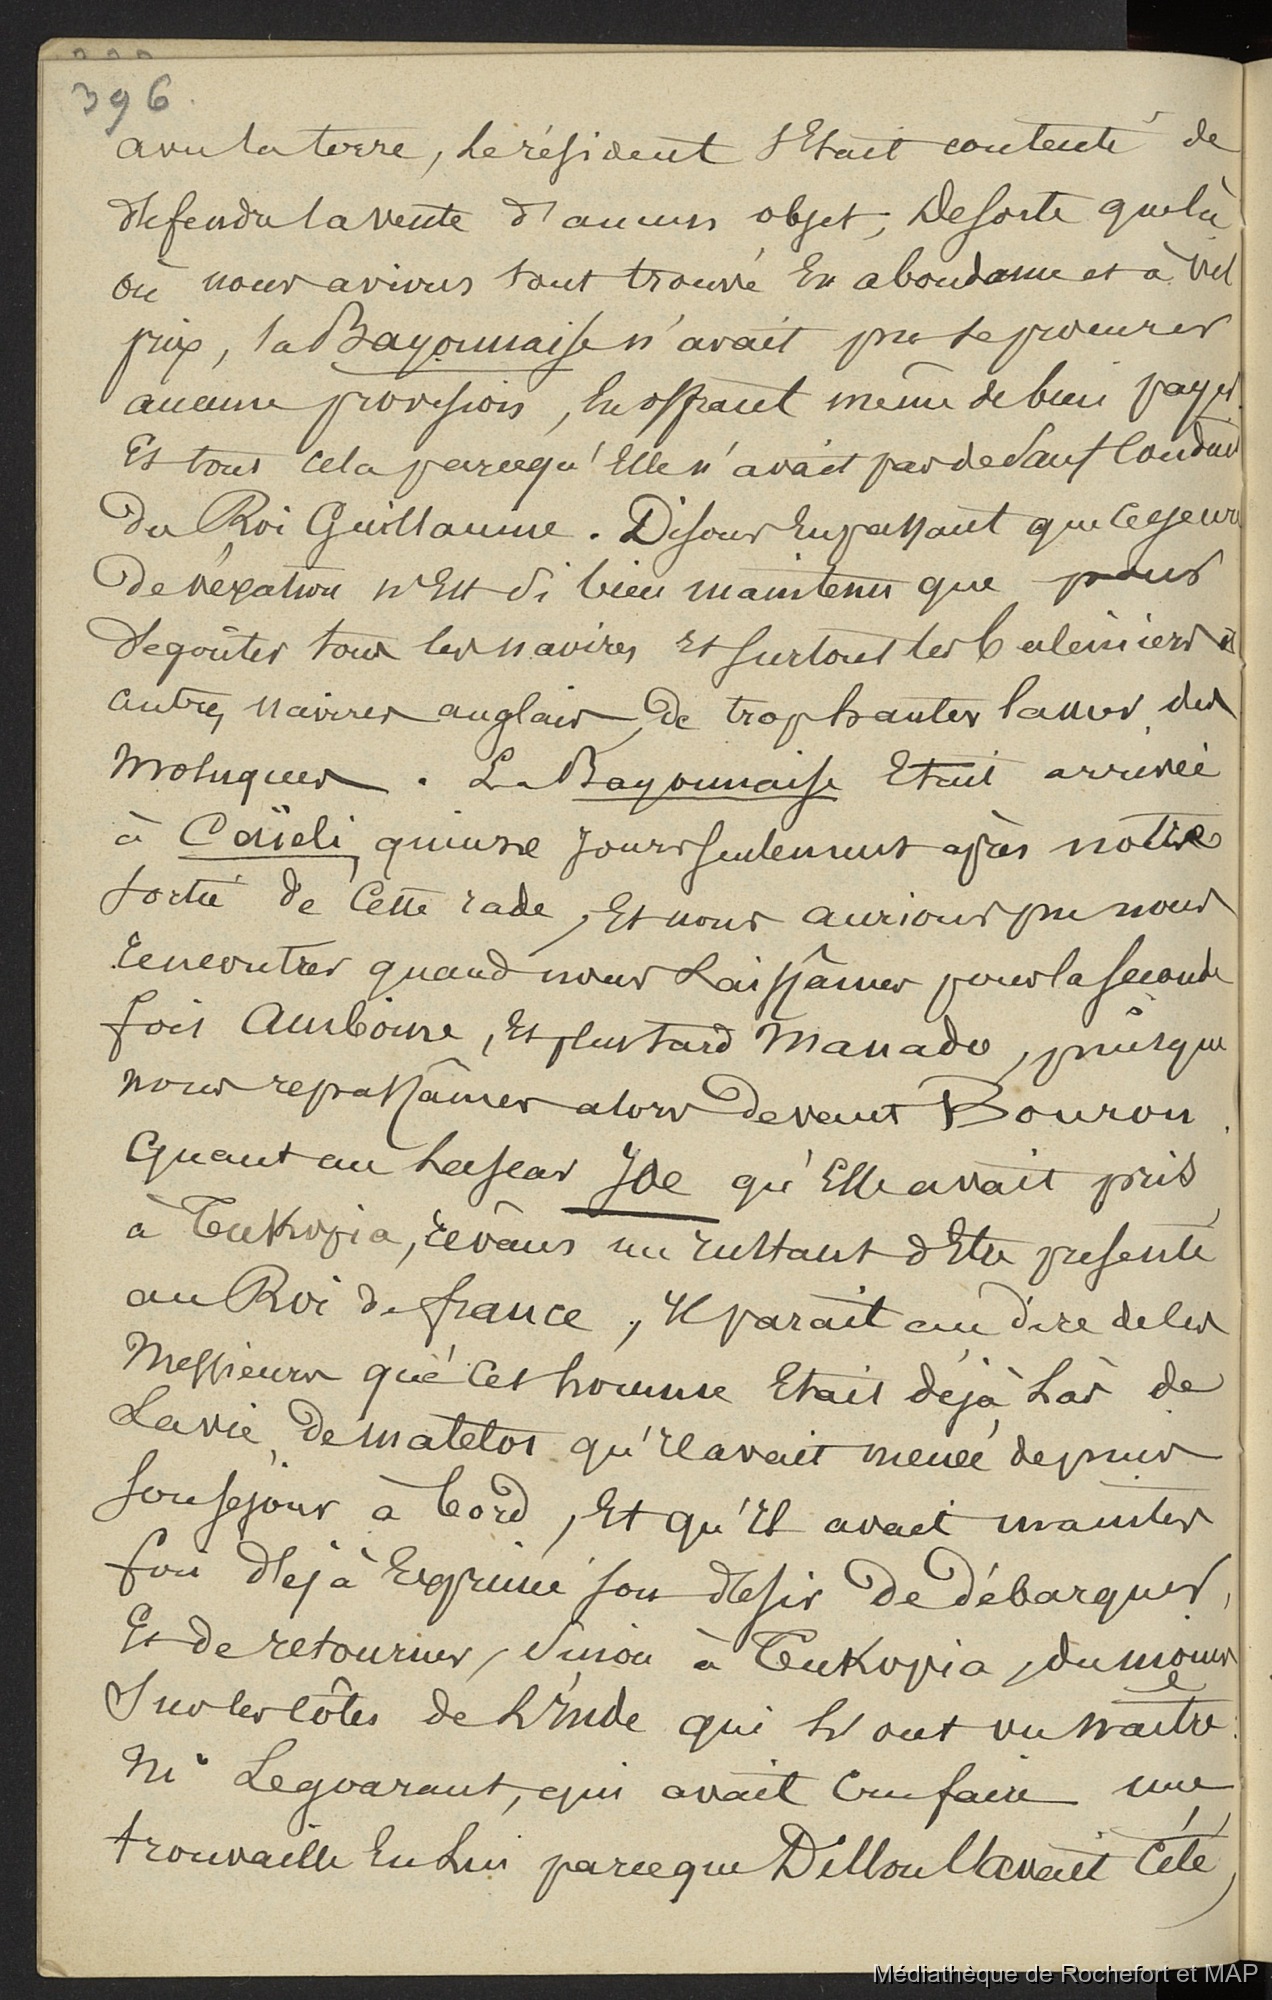 396
avec la terre, le résident s'Etait contenté de
défendre la vente d'aucun objet; De sorte que là
où nous avions tout trouvé En abondance et à vil
prix, la Bayonnaise n'avait pu se procurer
aucune provision, En offrant même de bien payer.
Et tout cela parcequ'Elle n'avait pas de Sauf Conduit
du Roi Guillaume. Disons En passant que ce genre
De véxation n'Est si bien maintenu que pour
dégoûter tous les navires Et surtout les baleiniers et
autres navires anglais, De trop hanter la mer des
Moluques. La Bayonnaise Etait arrivée
à Caïeli, quinze jours seulement après notre
sortie de Cette rade, Et nous aurions pu nous
rencontrer quand nous Laissâmes pour la seconde
fois Amboine, Et plus tard Manado, puisque
nous repassâmes alors Devant Bouron.
Quant au Lascar Joe qu'Elle avait pris
à Tukopia, rêvant un instant d'Etre présenté
au Roi de france, Il parait au dire de les
Messieurs que Cet homme Etait déjà Las de
La vie De matelot qu'il avait menée depuis
son séjour à bord, Et qu'Il avait maintes
fois déjà Exprimé son désir De débarquer,
Et de retourner, Sinon à Tukopia, du moins
Sur les côtes de L'Inde qui L'ont vu naître.
Mr Legoarant, qui avait Cru faire une
trouvaille En Lui parceque Dillon L'avait Cité,
Médiathèque de Rochefort et MAP